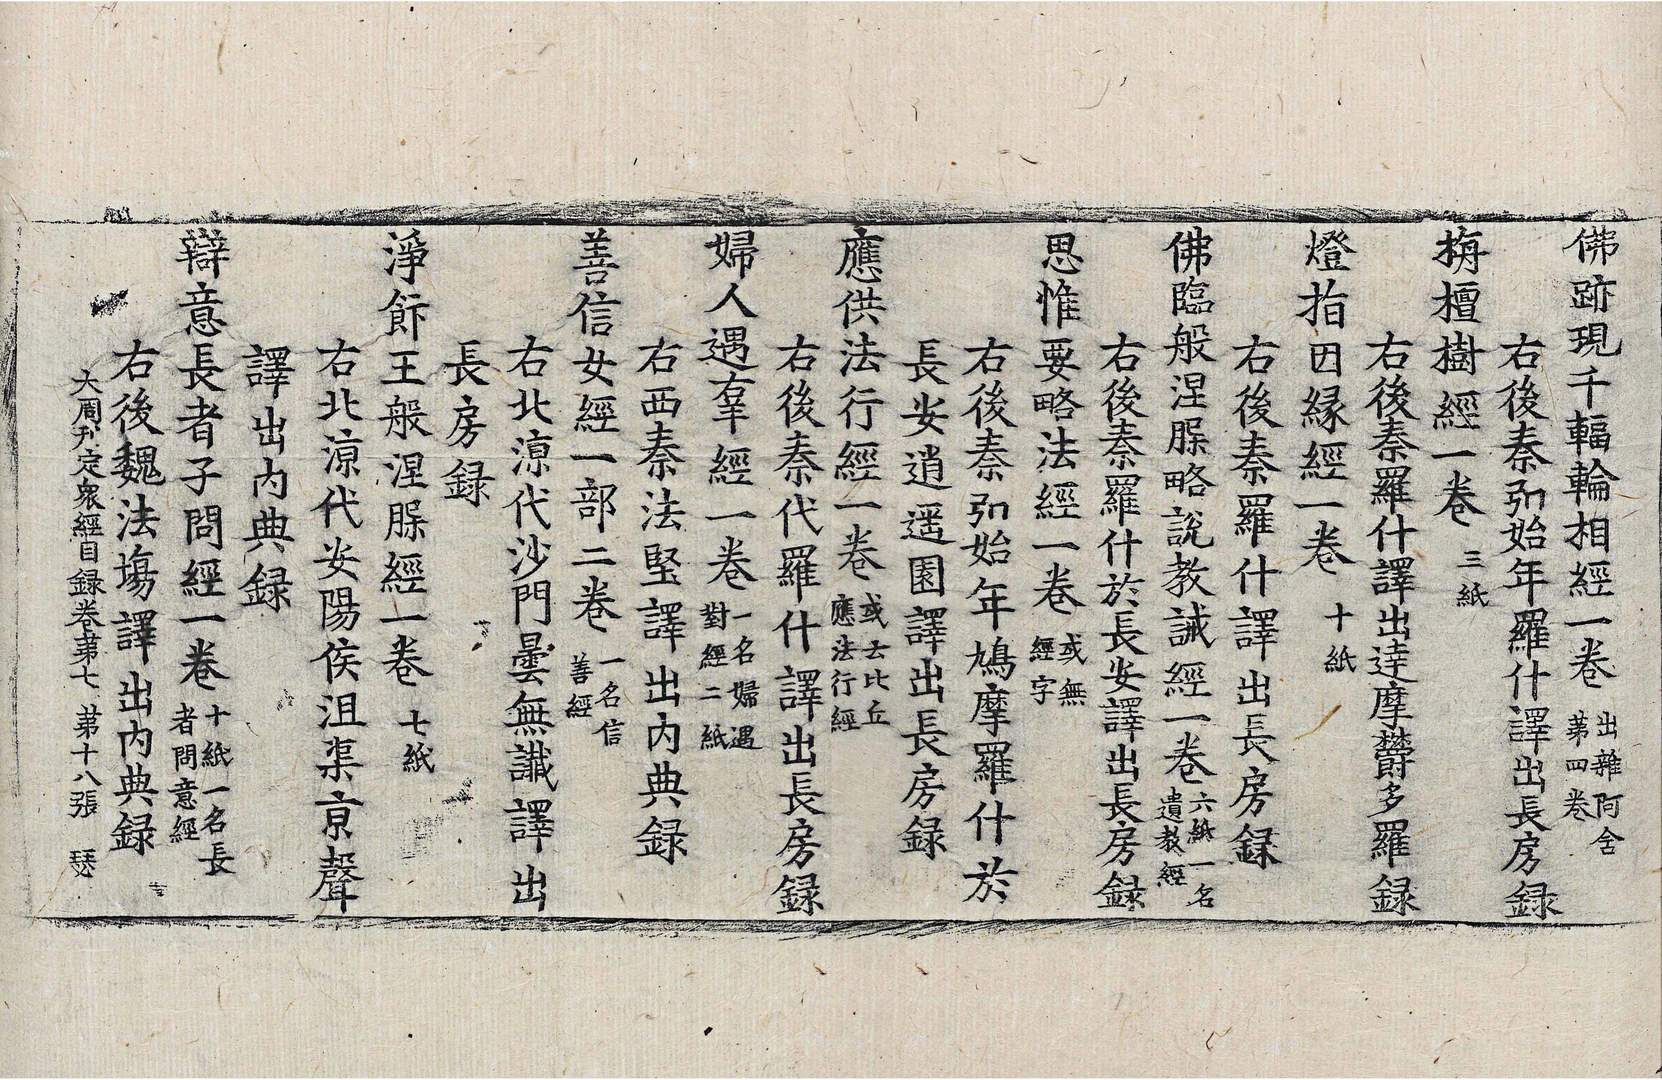 佛跡現千輻輪相經一卷 出雜阿含第四卷
右後秦弘始年羅什譯出長房録
栴檀樹經一卷 三紙
右後秦羅什譯出達摩欝多羅録
燈指因縁經一卷 十紙
右後秦羅什譯出長房録
佛臨般涅脲略說教誡經一卷 六紙一名遺教經
右後秦羅什於長安譯出長房録
思惟要略法經一卷 或無經字
右後秦弘始年鳩摩羅什於
長安逍遥園譯出長房録
應供法行經一卷 或云比丘應法行經
右後秦代羅什譯出長房録
婦人遇辜經一卷 一名婦遇對經二紙
右西秦法堅譯出内典録
善信女經一部二卷 一名信善經
右北涼代沙門曇無讖譯出
長房録
淨飯王般涅脲經一卷 七紙
右北涼代安陽侯沮渠京聲
譯出内典録
辯意長者子問經一卷 十紙一名長者問意經
右後魏法場譯出内典録
大周刋定衆經目録卷第七 第十八張 瑟